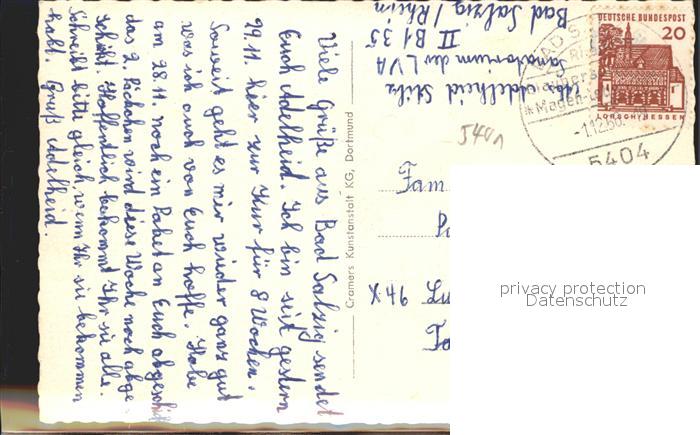 Viele Grüße aus Bad Salzig sendet
Euch Adelheid. Ich bin seit gestern
29.11. hier zur Kur für 8 Wochen.
Soweit geht es mir wieder ganz gut
was ich auch von Euch hoffe. Habe
am 28.11. noch ein Paket an Euch abgeschickt
das 2. Päckchen wird diese Woche noch abge-
schickt. Hoffentlich bekommt Ihr sie alle.
Schreibt bitte gleich, wenn Ihr sie bekommen
habt. Gruß Adelheid.
Cramers Kunstanstalt KG, Dortmund
Adelheid
Sanatorium der LVA
II B 135
Bad Salzig/Rhein
DEUTSCHE BUNDESPOST
20
LORSCH/HESSEN
BAD S
Magen-
-1.12.66
5404
5401
Fam
privacy protection
Datenschutz